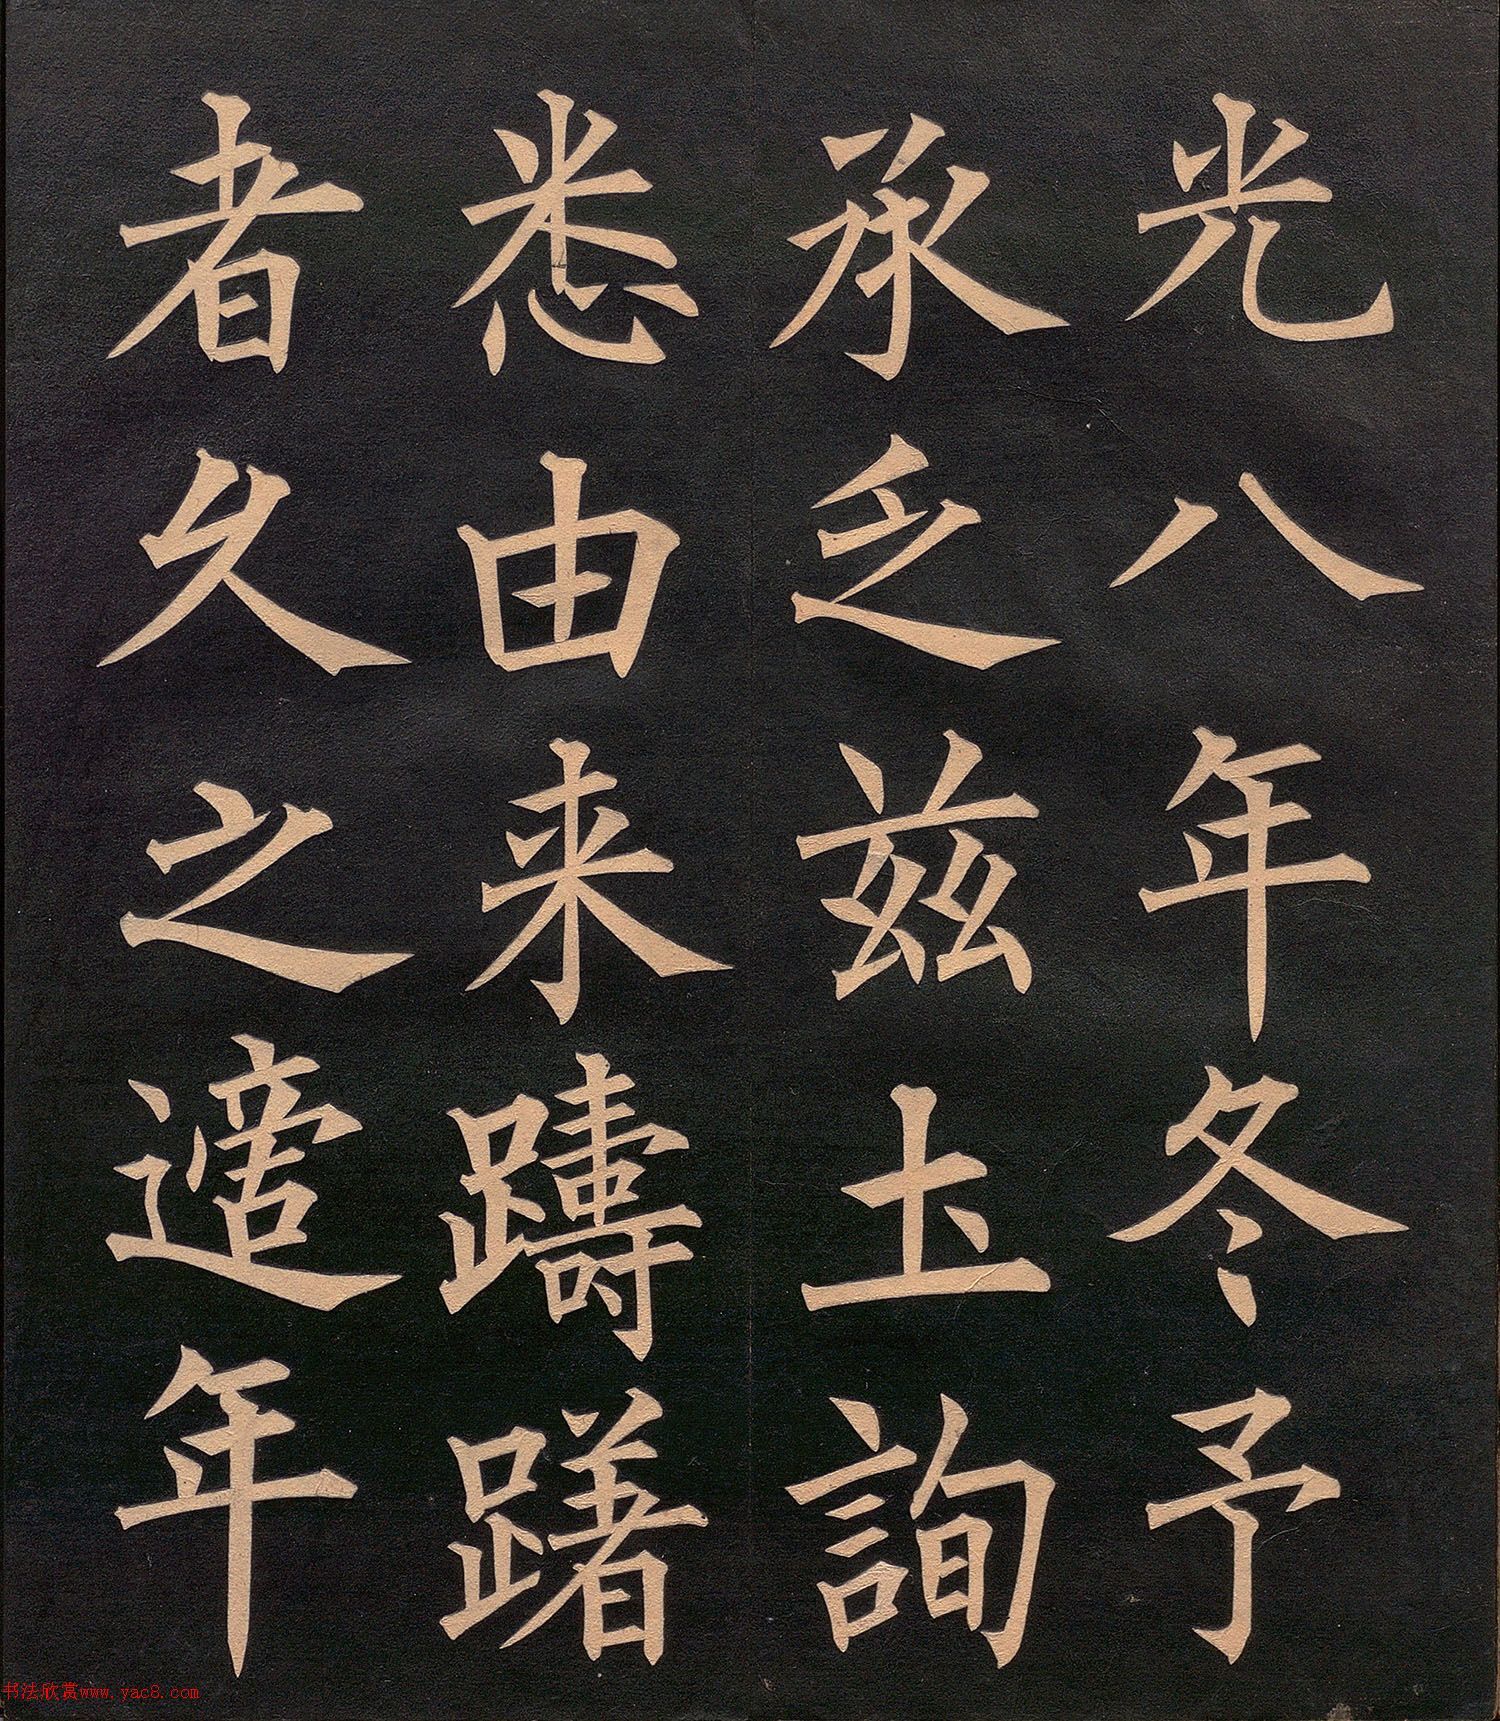 光八年冬予
承乏茲圡詢
悉由来躊躇
者久之遆年
书法欣赏www.yac8.com